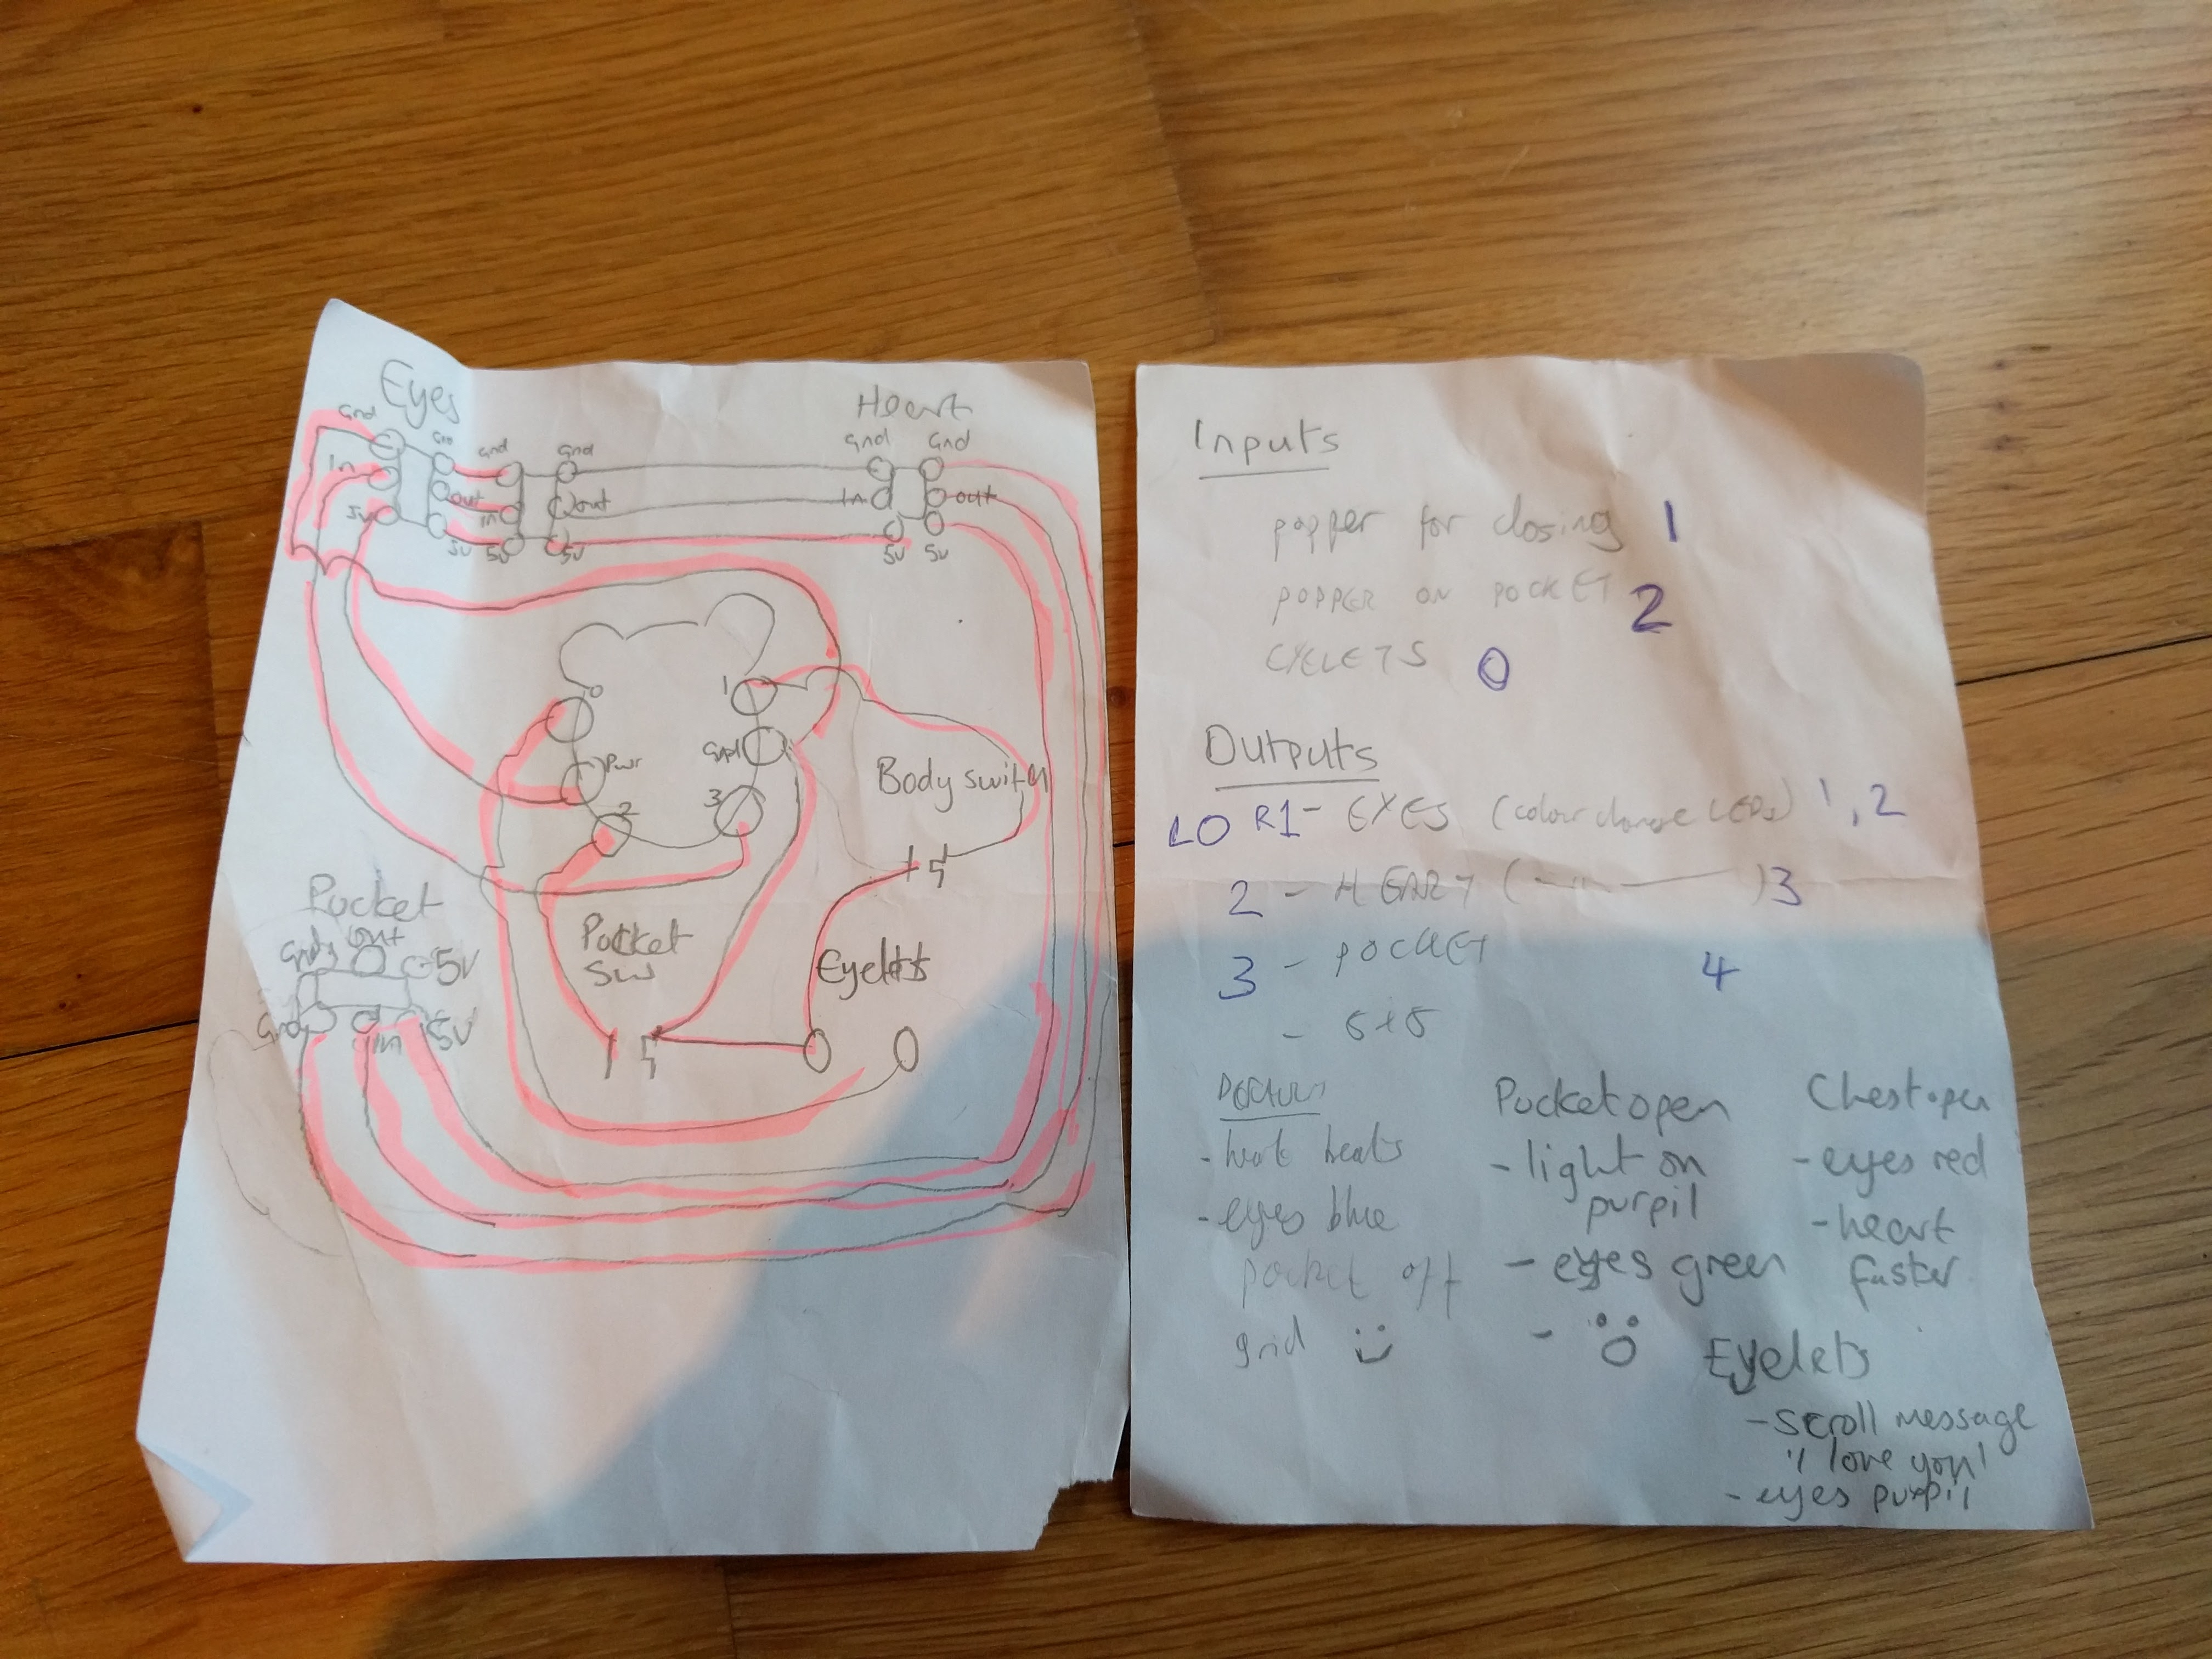 Eyes
Heart
Gnd
Gnd
Gnd
Gnd
Gnd
In
out
in
out
In
out
5v
5v
5v
5v
5v
5v
1
Pwr
Gnd
2
3
Body switch
Pocket
Gnd out 5V
Gnd In 5V
Pocket
SW
Eyelets
Inputs
popper for closing 1
POPPER ON POCKET 2
EYELETS 0
Outputs
L0 R1 - EYES (colour change LEDs) 1, 2
2 - HEART ( — " — ) 3
3 - POCKET 4
- 5+5
- heart beats
- eyes blue
pocket off
grid
Pocket open
- light on
purpil
- eyes green
-
Chest open
- eyes red
- heart
faster
Eyelets
- scroll message
'I love you'
- eyes purpil